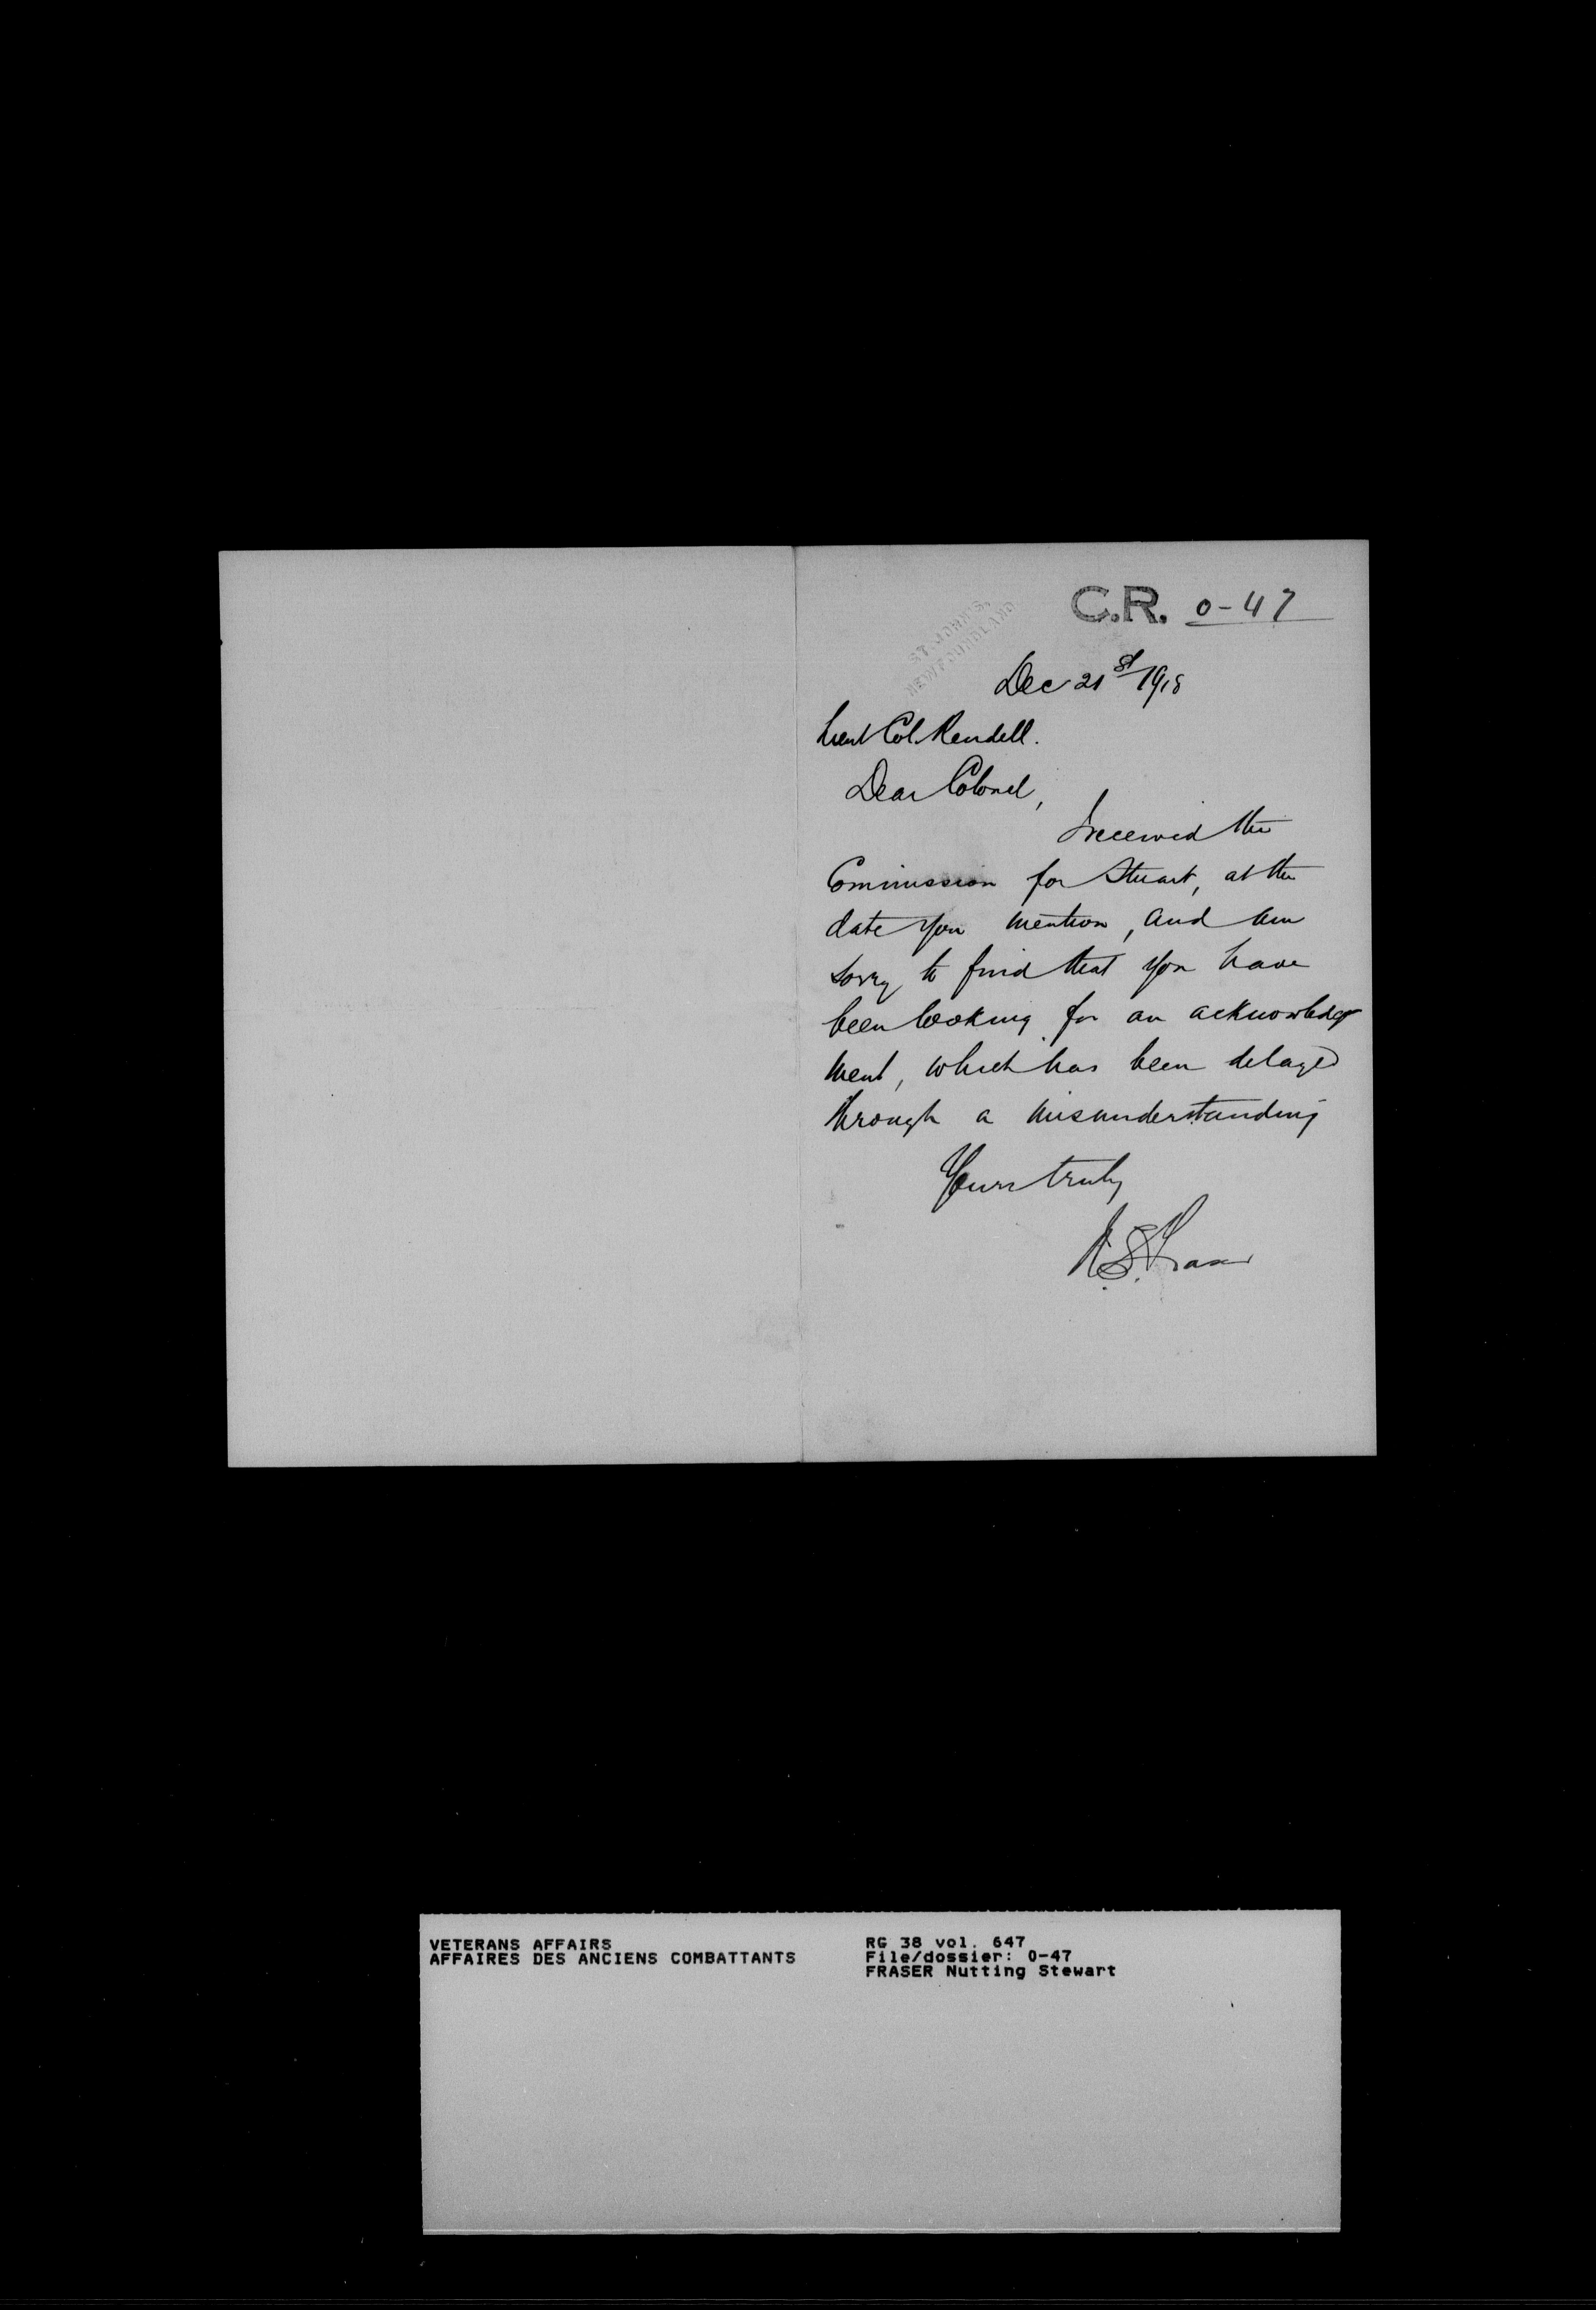 C.R. 0-47
ST. JOHN'S,
NEWFOUNDLAND
Dec 21st 1918
Lieut Col. Rendell.
Dear Colonel,
I received the
Commission for Stuart, at the
date you mention, and am
sorry to find that you have
been looking for an acknowledge
ment, which has been delayed
through a misunderstanding
Yours truly
N.S. Fraser
VETERANS AFFAIRS
AFFAIRES DES ANCIENS COMBATTANTS
RG 38 vol. 647
File/dossier: 0-47
FRASER Nutting Stewart